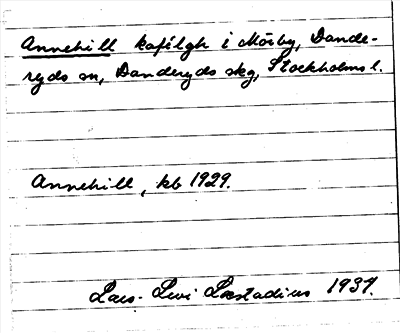 Annehill kafélgh i Mörby, Dande-
ryds sn, Danderyds skg, Stockholms l.
Annehill, kb 1929.
Lars-Levi Læstadius 1937.